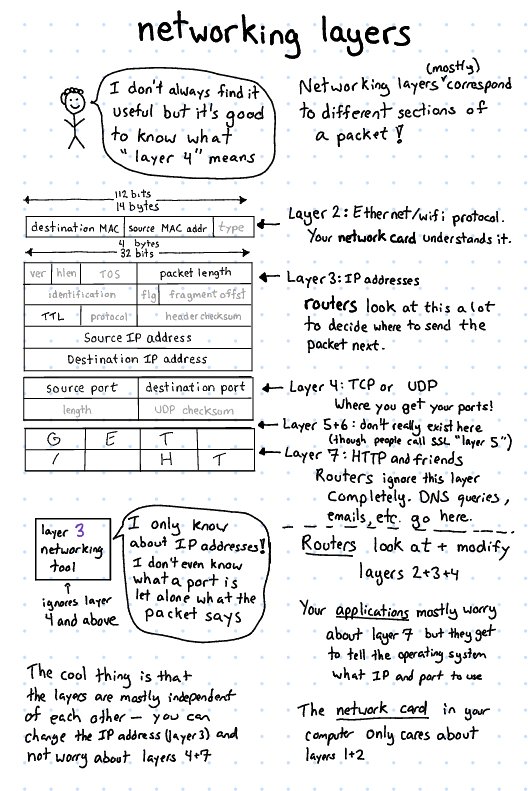 networking layers
I don't always find it
useful but it's good
to know what
"layer 4" means
(mostly)
Networking layers correspond
to different sections of
a packet!
112 bits
14 bytes
destination MAC source MAC addr type
Layer 2: Ethernet/wifi protocol.
Your network card understands it.
4 bytes
32 bits
ver hlen TOS packet length
identification flg fragment offst
TTL protocol header checksum
Source IP address
Destination IP address
Layer 3: IP addresses
routers look at this a lot
to decide where to send the
packet next.
source port destination port
length UDP checksum
Layer 4: TCP or UDP
Where you get your ports!
Layer 5+6: don't really exist here
(though people call SSL "layer 5")
G E T
/ H T
Layer 7: HTTP and friends
Routers ignore this layer
completely. DNS queries,
emails, etc. go here.
layer 3
networking
tool
ignores layer
4 and above
I only know
about IP addresses!
I don't even know
what a port is
let alone what the
packet says
Routers look at + modify
layers 2+3+4
Your applications mostly worry
about layer 7 but they get
to tell the operating system
what IP and port to use
The cool thing is that
the layers are mostly independent
of each other — you can
change the IP address (layer 3) and
not worry about layers 4+7
The network card in your
computer only cares about
layers 1+2